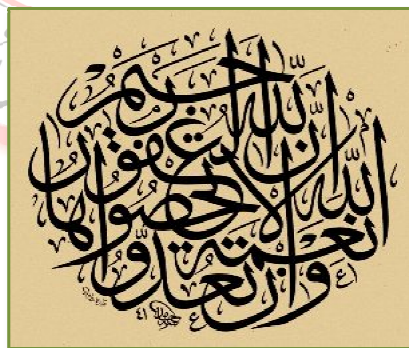 وَإِن تَعُدُّوا نِعْمَةَ اللَّهِ لَا تُحْصُوهَا إِنَّ اللَّهَ لَغَفُورٌ رَّحِيمٌ